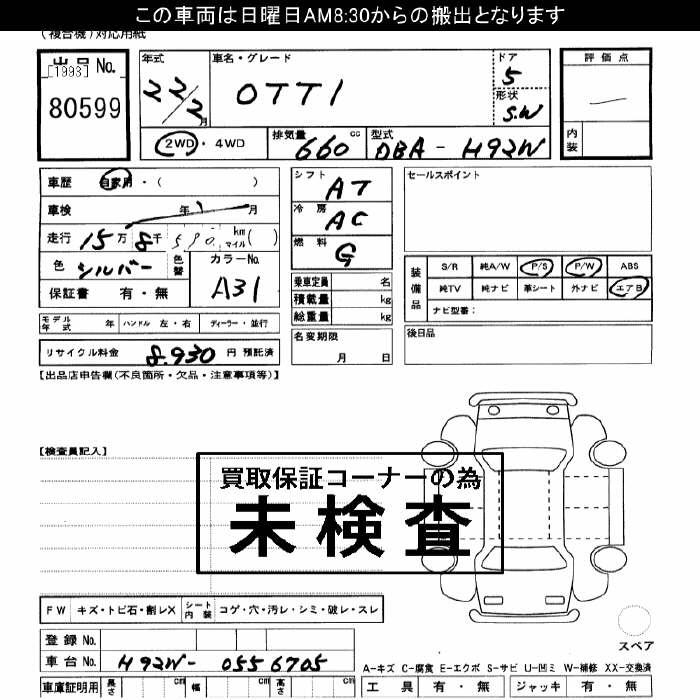 この車両は日曜日AM8:30からの搬出となります
(複合機)対応用紙
出品 No.
[1993]
80599
年式
22/2月
車名・グレード
OTTI
ドア
5
形状
S.W
2WD・4WD
排気量
660 cc
型式
DBA - H92W
評価点
内装
車歴 自家用・( )
車検 年 月
走行 15万 8千 590 km マイル( )
色 シルバー 色替
カラーNo.
A31
保証書 有・無
シフト
AT
冷房
AC
燃料
G
乗車定員 名
積載量 kg
総重量 kg
セールスポイント
装備品
S/R 純A/W P/S P/W ABS
純TV 純ナビ 革シート 外ナビ エアB
ナビ型番:
モデル年式 年 ハンドル 左・右 ディーラー・並行
名変期限
月 日
後日品
リサイクル料金 8,930 円 預託済
【出品店申告欄(不良箇所・欠品・注意事項等)】
【検査員記入】
買取保証コーナーの為
未検査
FW キズ・トビ石・割レX シート内装 コゲ・穴・汚レ・シミ・破レ・スレ
登録 No.
車台 No. H92W- 0556705
スペア
A-キズ C-腐食 E-エクボ S-サビ U-凹ミ W-補修 XX-交換済
車庫証明用 長さ cm 幅 cm 高さ cm
工具 有・無 ジャッキ 有・無